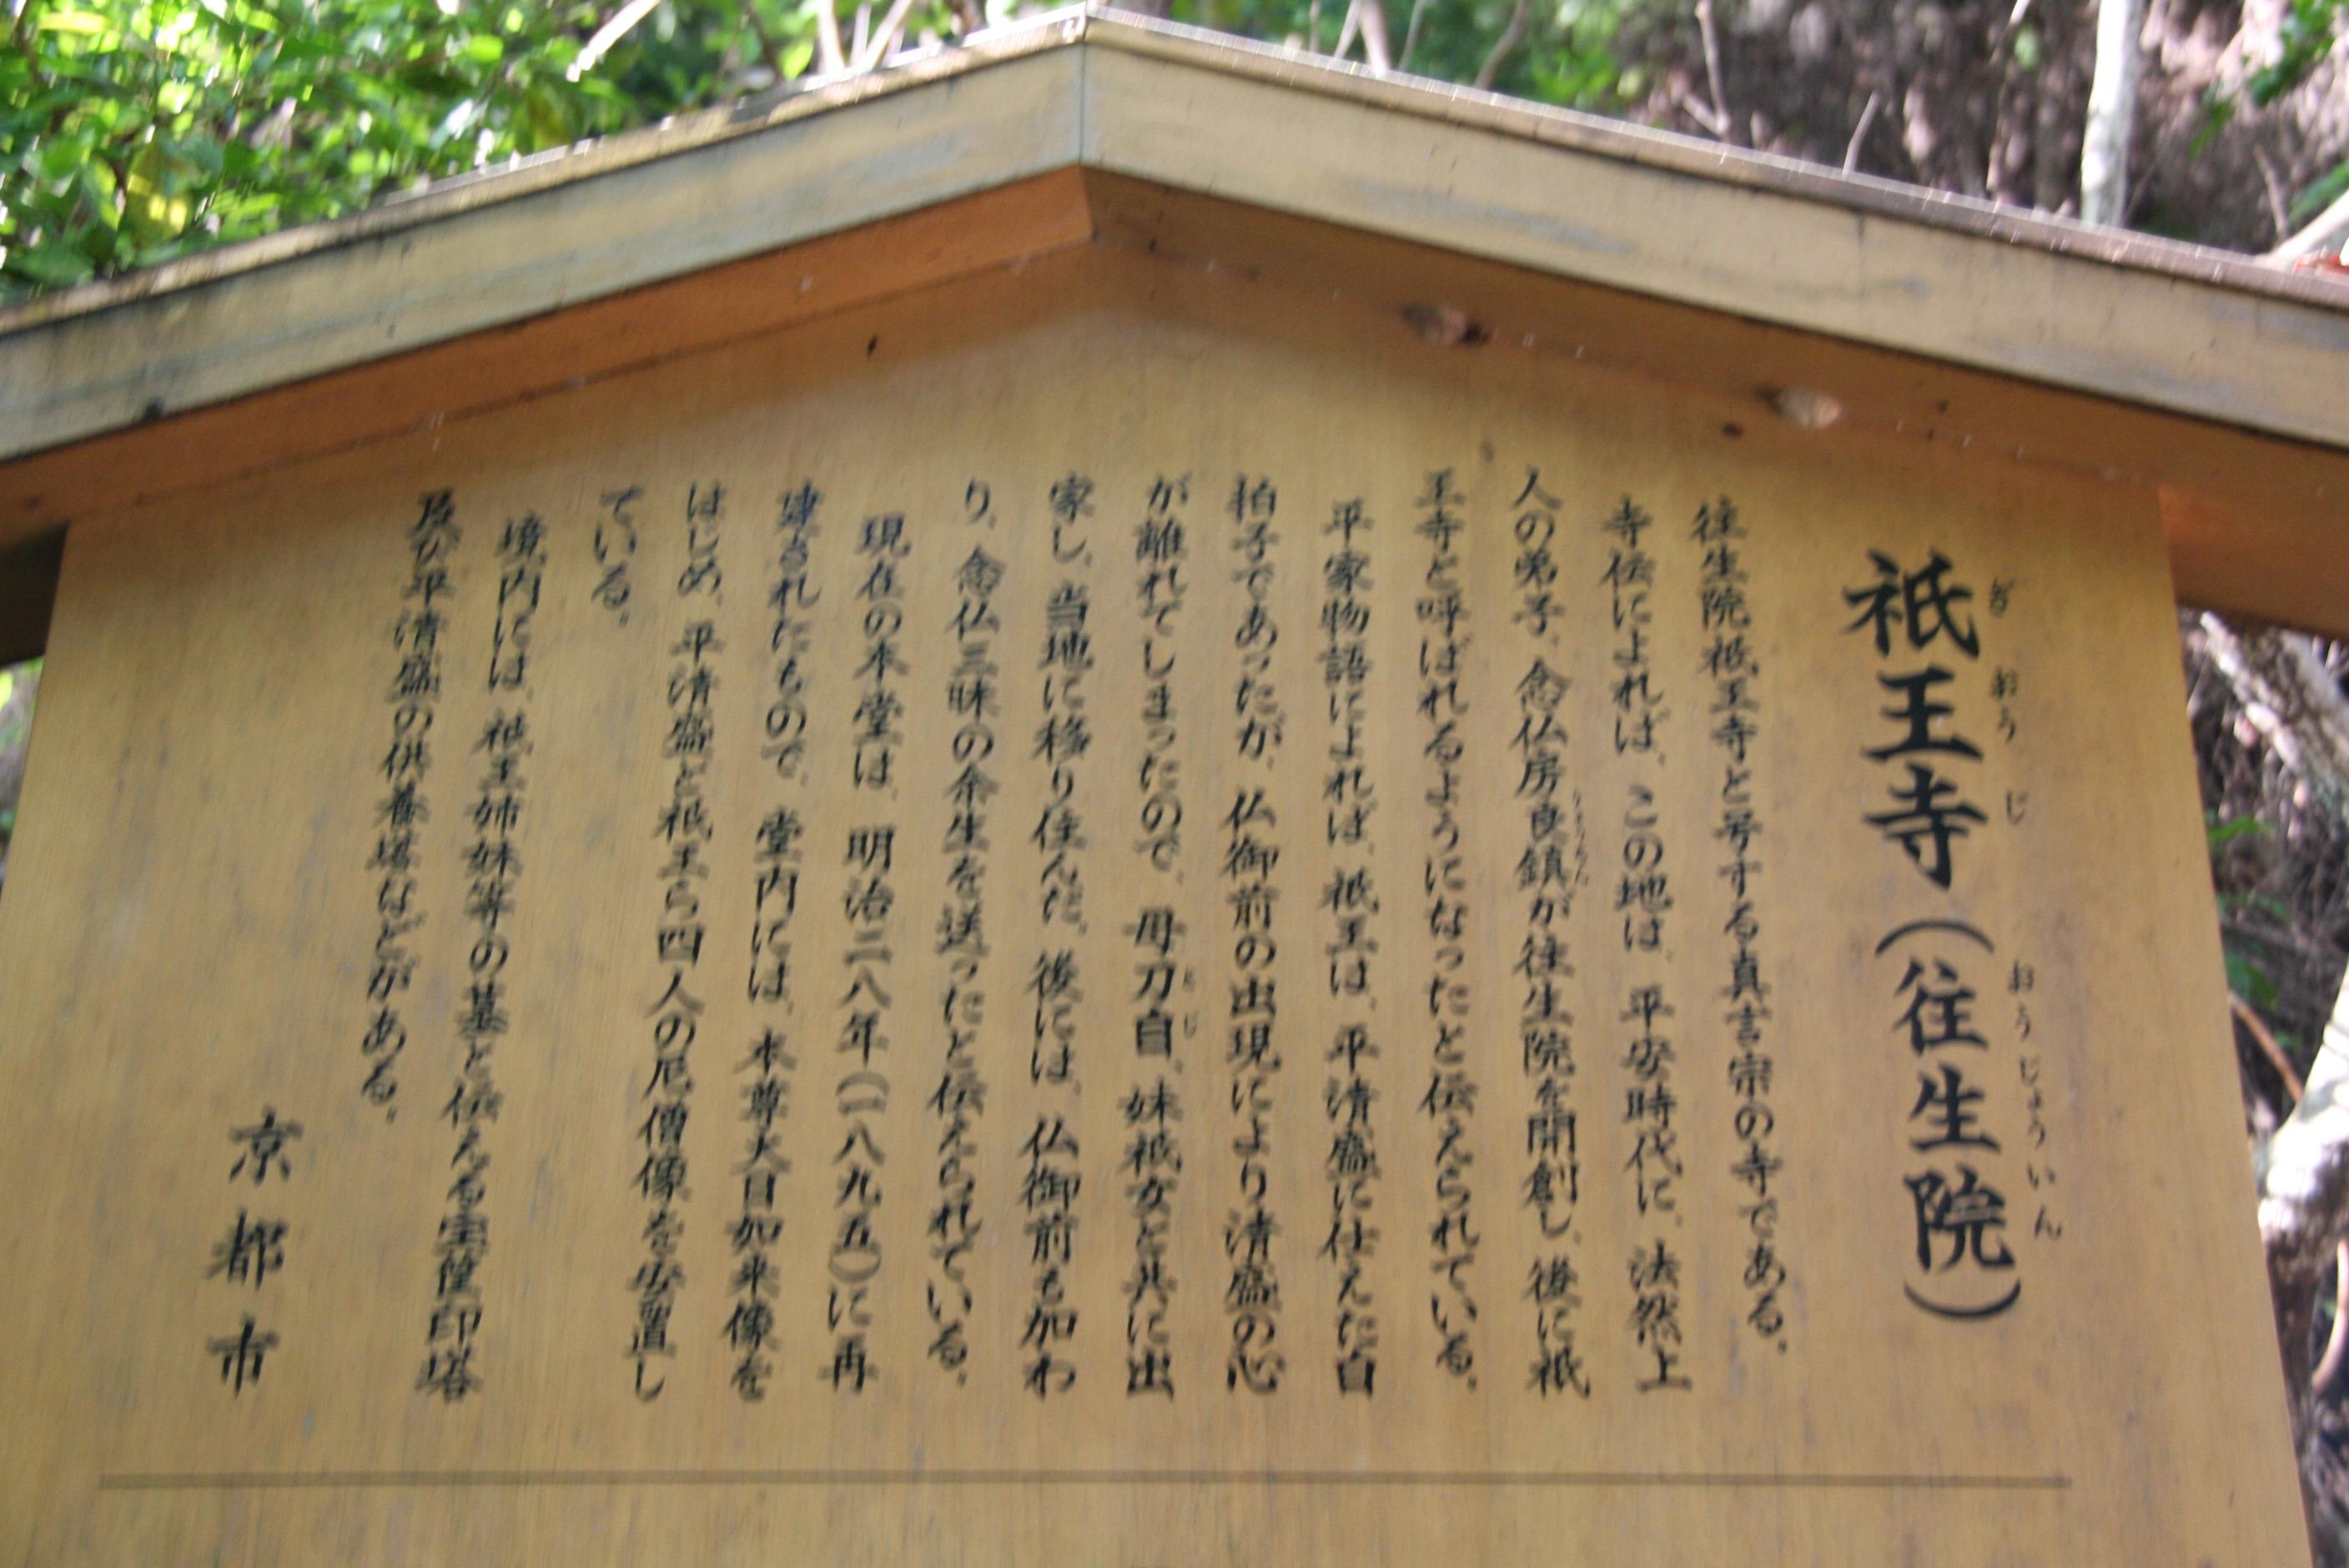 祇王寺(往生院)
ぎおうじ おうじょういん
往生院祇王寺と号する真言宗の寺である。
寺伝によれば、この地は、平安時代に、法然上
人の弟子、念仏房良鎮が往生院を開創し、後に祇
王寺と呼ばれるようになったと伝えられている。
平家物語によれば、祇王は、平清盛に仕えた白
拍子であったが、仏御前の出現により清盛の心
が離れてしまったので、母刀自、妹祇女と共に出
とじ
家し、当地に移り住んだ。後には、仏御前も加わ
り、念仏三昧の余生を送ったと伝えられている。
現在の本堂は、明治二八年(一八九五)に再
建されたもので、堂内には、本尊大日如来像を
はじめ、平清盛と祇王ら四人の尼僧像を安置し
ている。
境内には、祇王姉妹等の墓と伝える宝筐印塔
及び平清盛の供養塔などがある。
京都市